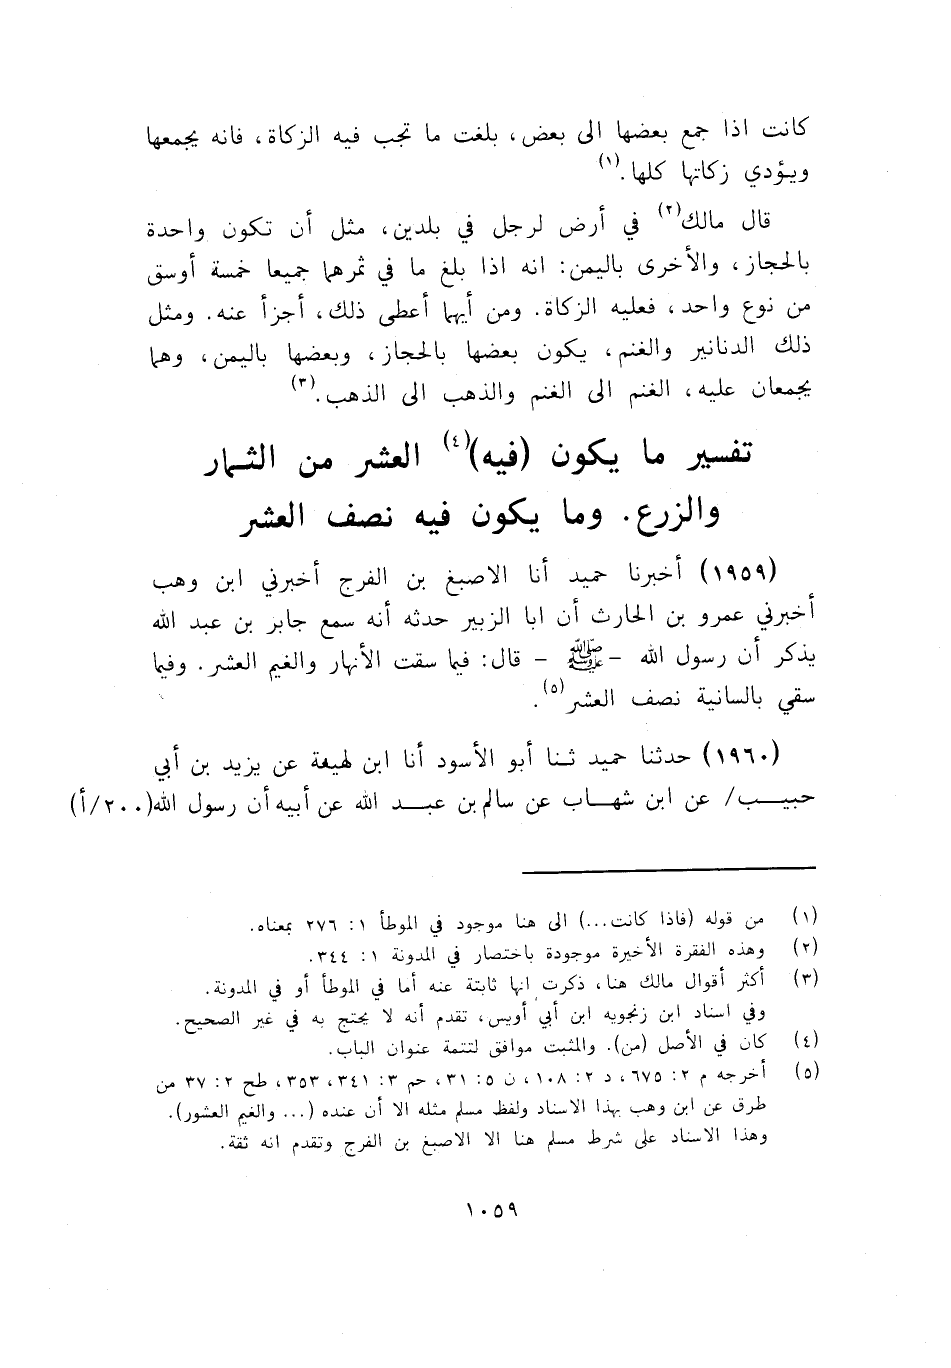 كانت اذا جمع بعضها الى بعض، بلغت ما تجب فيه الزكاة، فانه يجمعها
ويؤدي زكاتها كلها.(١)
قال مالك(٢) في أرض لرجل في بلدين، مثل أن تكون واحدة
بالحجاز، والأخرى باليمن: انه اذا بلغ ما في ثمرهما جميعا خمسة أوسق
من نوع واحد، فعليه الزكاة. ومن أيهما أعطى ذلك، أجزأ عنه. ومثل
ذلك الدنانير والغنم، يكون بعضها بالحجاز، وبعضها باليمن، وهما
يجمعان عليه، الغنم الى الغنم والذهب الى الذهب.(٣)
تفسير ما يكون (فيه)(٤) العشر من الثمار
والزرع. وما يكون فيه نصف العشر
(١٩٥٩) أخبرنا حميد أنا الاصبغ بن الفرج أخبرني ابن وهب
أخبرني عمرو بن الحارث أن ابا الزبير حدثه أنه سمع جابر بن عبد الله
يذكر أن رسول الله - ﷺ - قال: فيما سقت الأنهار والغيم العشر. وفيما
سقي بالسانية نصف العشر(٥).
(١٩٦٠) حدثنا حميد ثنا أبو الأسود أنا ابن لهيعة عن يزيد بن أبي
حبيب/ عن ابن شهاب عن سالم بن عبد الله عن أبيه أن رسول الله (٢٠٠/أ)
(١) من قوله (فاذا كانت...) الى هنا موجود في الموطأ ١: ٢٧٦ بمعناه.
(٢) وهذه الفقرة الأخيرة موجودة باختصار في المدونة ١: ٣٤٤.
(٣) أكثر أقوال مالك هنا، ذكرت انها ثابتة عنه أما في الموطأ أو في المدونة.
وفي اسناد ابن زنجويه ابن أبي أويس، تقدم أنه لا يحتج به في غير الصحيح.
(٤) كان في الأصل (من). والمثبت موافق لتتمة عنوان الباب.
(٥) أخرجه م ٢: ٦٧٥، د ٢: ١٠٨، ن ٥: ٣١، حم ٣: ٣٤١، ٣٥٣، طح ٢: ٣٧ من
طرق عن ابن وهب بهذا الاسناد ولفظ مسلم مثله الا أن عنده (... والغيم العشور).
وهذا الاسناد على شرط مسلم هنا الا الاصبغ بن الفرج وتقدم انه ثقة.
١٠٥٩